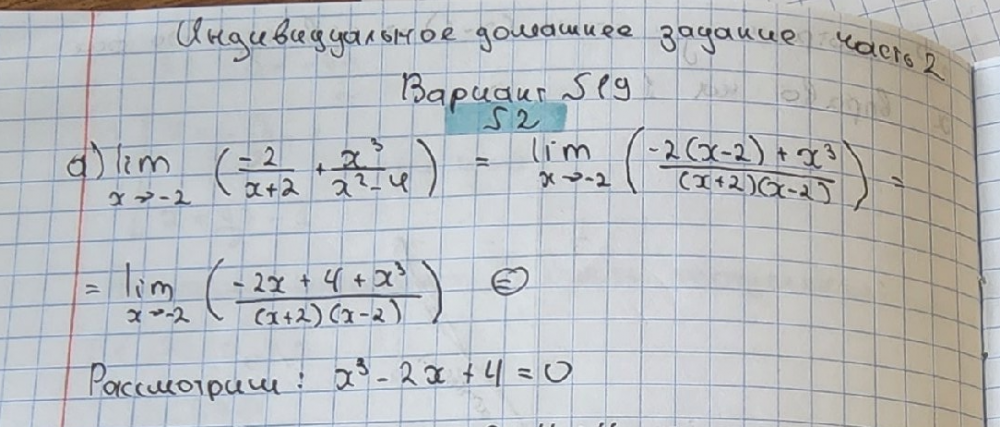 Индивидуальное домашнее задание, часть 2
Вариант №19
№2
а) lim x→-2 (-2/(x+2) + x³/(x²-4)) = lim x→-2 ((-2(x-2) + x³)/((x+2)(x-2))) =
= lim x→-2 ((-2x + 4 + x³)/((x+2)(x-2))) ⊜
Рассмотрим: x³ - 2x + 4 = 0